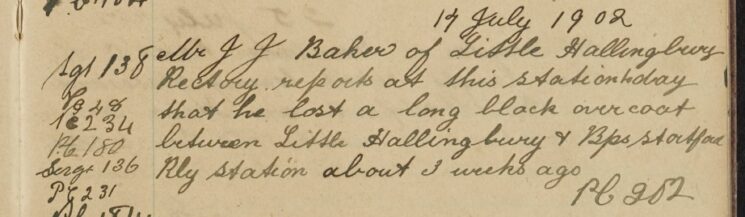 17 July 1902
Sgt 138
Mr J J Baker of Little Hallingbury
Rectory reports at this station today
Pc 48
that he lost a long black overcoat
Pc 234
between Little Hallingbury & Bps stortford
Pc 180
Sergt 136
Rly station about 3 weeks ago
PC 231
PC 252